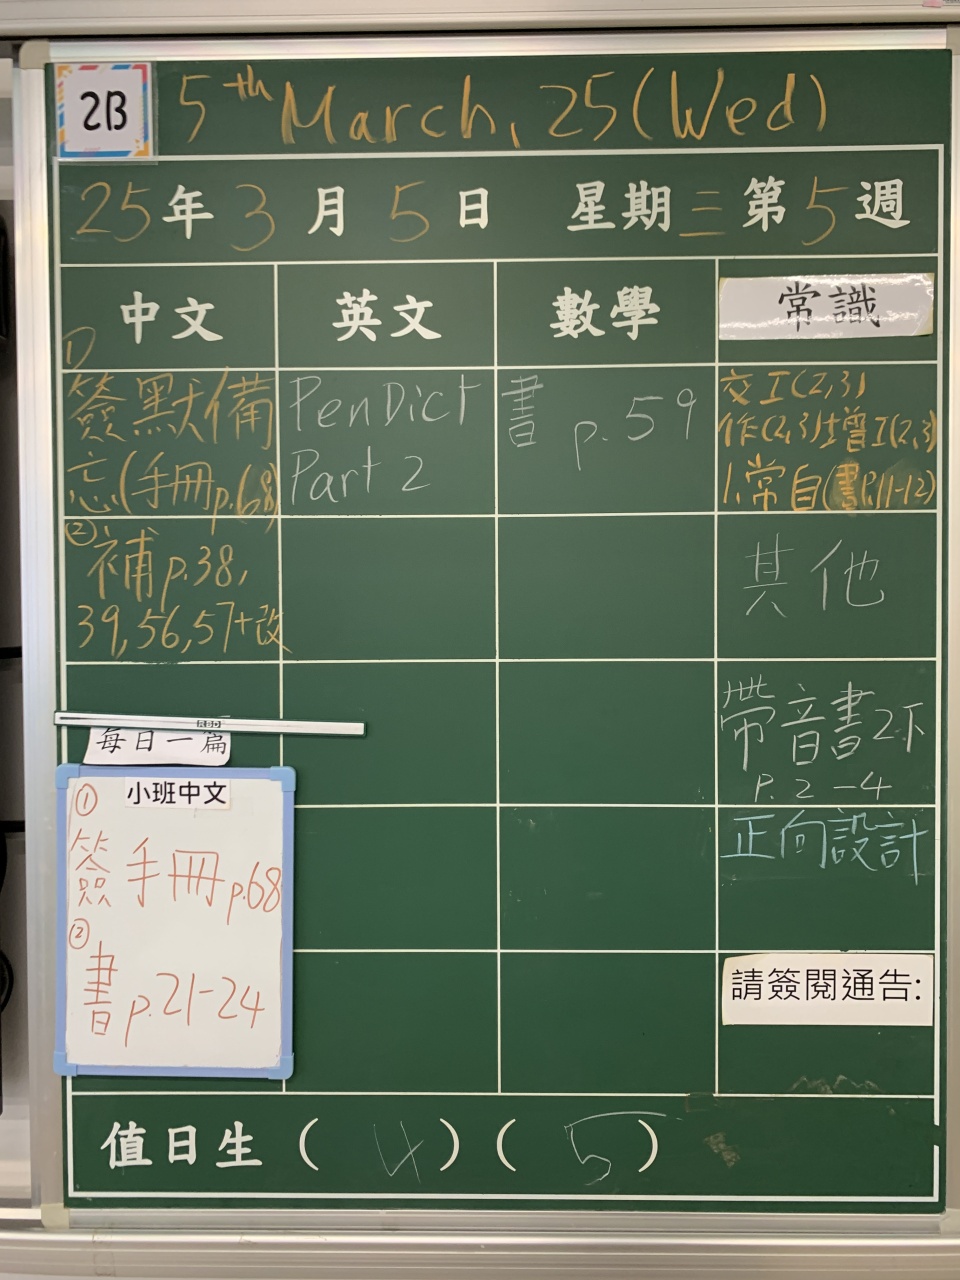 2B
5th March, 25 (Wed)
25年3月5日 星期三 第5週
中文
英文
數學
常識
①
簽默備
忘(手冊p.68)
②補p.38,
39,56,57+改
PenDict
Part 2
書 p.59
交工(2,3)
作(2,3)增工(2,3)
1.常自(書P.11-12)
其他
帶音書2下
P.2-4
正向設計
請簽閱通告:
每日一篇
小班中文
①
簽手冊p.68
②
書p.21-24
值日生(4)(5)